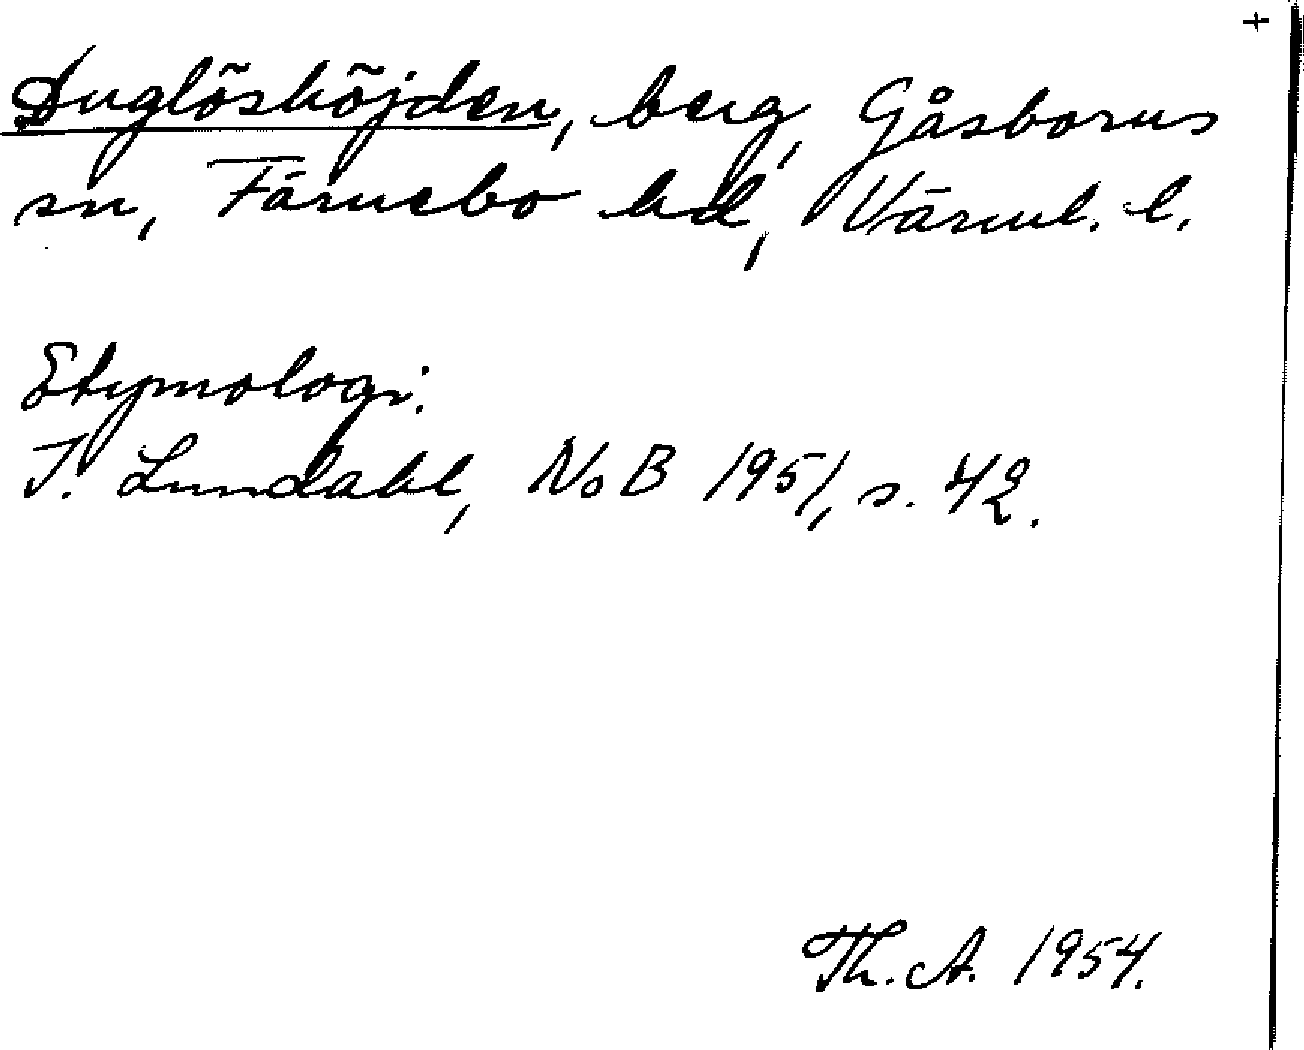 +
Duglöshöjden, berg, Gåsborns
sn, Färnebo hd, Värml. l.
Etymologi:
I. Lundahl, NoB 1951, s. 42.
Th. A. 1954.